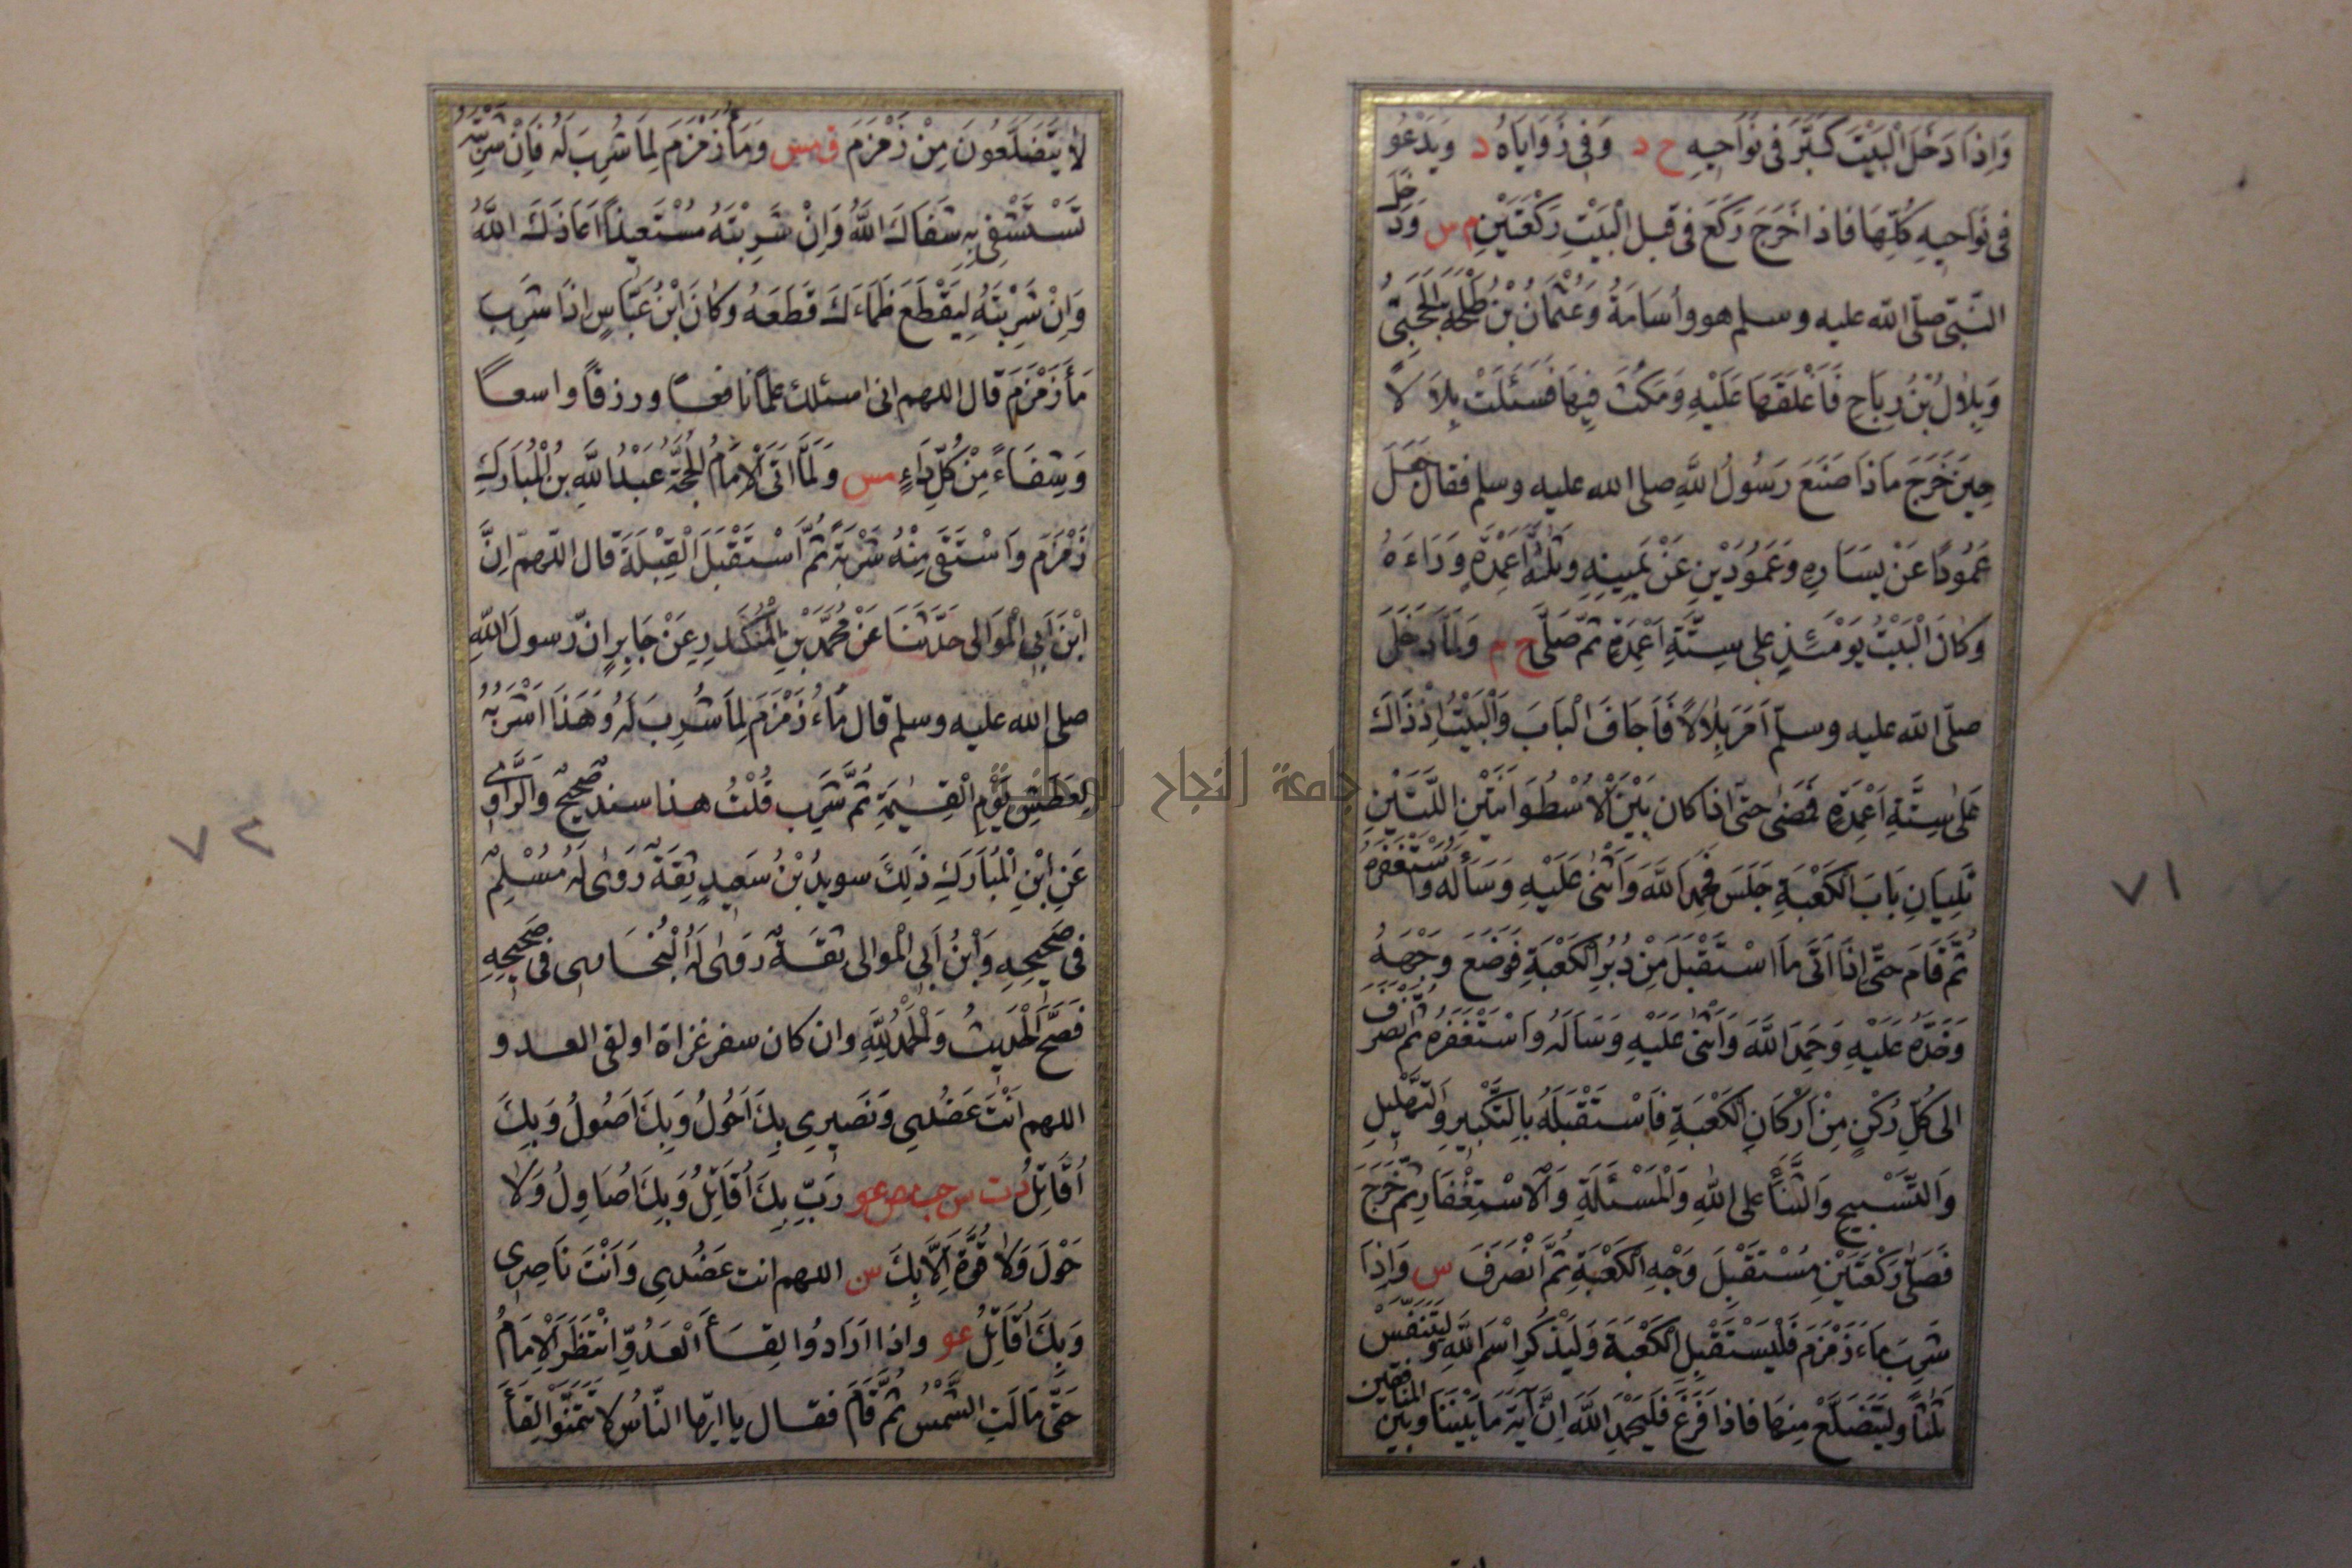 وَاِذَا دَخَلَ الْبَيْتَ كَبَّرَ فى نَوَاحِيهِ خ د وَفى زَوَايَاهُ د وَيَدْعُو
فى نَوَاحِيهِ كُلِّهَا فَاذا خَرَجَ رَكَعَ فى قبل الْبَيْتِ رَكْعَتَيْنِ م س وَدَخَلَ
النّبىّ صلّى الله عليه وسلم هو واُسَامَةُ وَعُثمَانُ بْنُ طَلْحَةَ الْحَجَبِىُّ
وَبِلالُ بْنُ رِبَاحٍ فَاَغْلَقَهَا عَلَيْهِ وَمَكَثَ فِيهَا فَسَئَلْتُ بِلَا لًا
حِينَ خَرَجَ مَاذَا صَنَعَ رَسُولُ اللهِ صلى الله عليه وسلم فقال جَعَلَ
عَمُودًا عَنْ يَسَارِهِ وَعَمُودَيْنِ عَنْ يَمِينِهِ وَثَلٰثَةَ اَعْمِدَةٍ وَرَاءَهُ
وَكانَ الْبَيْتُ يَوْمَئِذٍ على سِتَّةِ اَعْمِدَةٍ ثمّ صَلّى خ م وَلَمَّا دَخَلَ
صلّى الله عليه وسلّم اَمَرَ بِلالًا فَاَجَافَ الْبَابَ وَالْبَيْتُ اِذْ ذَاكَ
عَلى سِتَّةِ اَعْمِدَةٍ فَمَضٰى حتّى اذا كان بَيْنَ الاُسْطُوَانَتَيْنِ اللَّتَيْنِ
تَلِيَانِ بَابَ الْكَعْبَةِ جَلَسَ فَحَمِدَ اللهَ وَاَثْنٰى عَلَيْهِ وَسَأَلَهُ وَاسْتَغْفَرَهُ
ثُمّ قَامَ حتّى اِذَا اَتَى مَا اسْتَقْبَلَ مِنْ دُبُرِ الْكَعْبَةِ فَوَضَعَ وَجْهَهُ
وَخَدَّهُ عَلَيْهِ وَحَمِدَ اللهَ وَاَثْنٰى عَلَيْهِ وَسَاَلَهُ وَاسْتَغْفَرَهُ ثم انْصَرَفَ
الى كُلِّ رُكْنٍ مِنْ اَرْكَانِ الْكَعْبَةِ فَاسْتَقْبَلَهُ بِالتَّكْبِيرِ وَالتَّهْلِيلِ
وَالتَّسْبِيحِ وَالثَّنَاءِ على اللهِ وَالْمَسْئَلَةِ وَالاسْتِغْفَارِ ثمّ خَرَجَ
فَصَلّى رَكْعَتَيْنِ مُسْتَقْبِلَ وَجْهِ الْكَعْبَةِ ثُمَّ انْصَرَفَ س وَاِذَا
شَرِبَ مَاءَ زَمْزَمَ فَلْيَسْتَقْبِلِ الْكَعْبَةَ وَلْيَذْكُرِ اسْمَ اللهِ وَلْيَتَنَفَّسْ
ثَلٰثًا وَلْيَتَضَلَّعْ مِنهَا فاذا فَرَغَ فَلْيَحْمَدِ اللهَ اِنَّ آيَةَ مَا بَيْنَنَا وَبَيْنَ المُنَافِقِينَ
٧١
لَا يَتَضَلَّعُونَ مِنْ زَمْزَمَ ق مس وَمَاءُ زَمْزَمَ لِمَا شُرِبَ لَهُ فَاِنْ شَرِبْتَهُ
تَسْتَشْفِى بِهِ شَفَاكَ اللهُ وَاِنْ شَرِبْتَهُ مُسْتَعِيذًا اَعَاذَكَ اللهُ
وَاِنْ شَرِبْتَهُ لِيَقْطَعَ ظَمَاءَكَ قَطَعَهُ وَكانَ ابْنُ عَبَّاسٍ اذَا شَرِبَ
مَاءَ زَمْزَمَ قَال اللهم انى اسئلك علمًا نافعًا ورزقًا واسعًا
وَشِفَاءً مِنْ كُلِّ دَاءٍ مس وَلَمَّا اَتَى الْاِمَامُ الْحُجَّةُ عَبْدُ اللهِ بْنُ الْمُبَارَكِ
زَمْزَمَ وَاسْتَقَى مِنْهُ شَرْبَةً ثُمَّ اسْتَقْبَلَ الْقِبْلَةَ قال اللّهمّ اِنَّ
ابْنَ اَبِى الْمَوَالى حَدَّثَنَا عَنْ مُحَمَّدِ بْنِ الْمُنْكَدِرِ عَنْ جَابِرٍ انّ رسولَ اللهِ
صلى الله عليه وسلم قال مَاءُ زَمْزَمَ لِمَا شُرِبَ لَهُ وَهَذَا اَشْرَبُهُ
لِعَطَشِ يَوْمِ الْقِيٰمَةِ ثُمَّ شَرِبَ قُلْتُ هذا سند صَحِيحٌ وَالرَّاوِى
عَنِ ابْنِ الْمُبَارَكِ ذَلِكَ سويدُ بْنُ سَعِيدٍ ثِقَةٌ رَوَى لَهُ مُسْلِمٌ
فى صَحِيحِهِ وَابْنُ اَبِى الْموالى ثقَةٌ رَوَى لَهُ الْبُخَارِى فى صَحِيحِهِ
فَصَحَّ الْحَدِيثُ وَالْحَمْدُ لِلّهِ وان كان سفر غزاة او لقى العدو
اللهم اَنْتَ عَضُدِى وَنَصِيرِى بِكَ اَحُولُ وَبِكَ اَصُولُ وَبِكَ
اُقَاتِلُ د ت س حب مص عو رَبِّ بِكَ اُقَاتِلُ وَبِكَ اُصَاوِلُ وَلَا
حَوْلَ وَلا قُوَّةَ اِلَّا بِكَ س اللهم انت عَضُدِى وَاَنْتَ نَاصِرِى
وَبِكَ اُقَاتِلُ عو واذا اَرَادُوا لِقَاءَ الْعَدُوِّ انْتَظَرَ الْاِمَامُ
حَتَّى مَالَتِ الشَّمْسُ ثُمَّ قَامَ فقال يا ايّها النّاسُ لا تَتَمَنَّوْا لِقَاءَ
٧٢
جامعة النجاح الوطنية